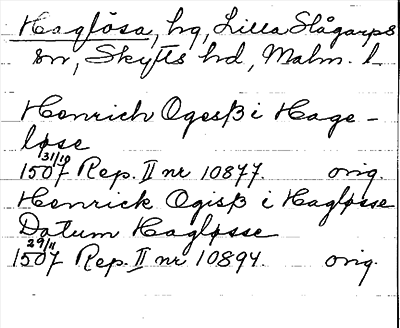 Haglösa, hg, Lilla Slågarps
sn, Skytts hd, Malm. l
Henrich Ogesß i Hage-
løse
31/10
1507 Rep. II nr 10877. orig.
Henrick Ogisß i Hagløsse
Datum Hagløsse
29/11
1507 Rep. II nr 10894. orig.